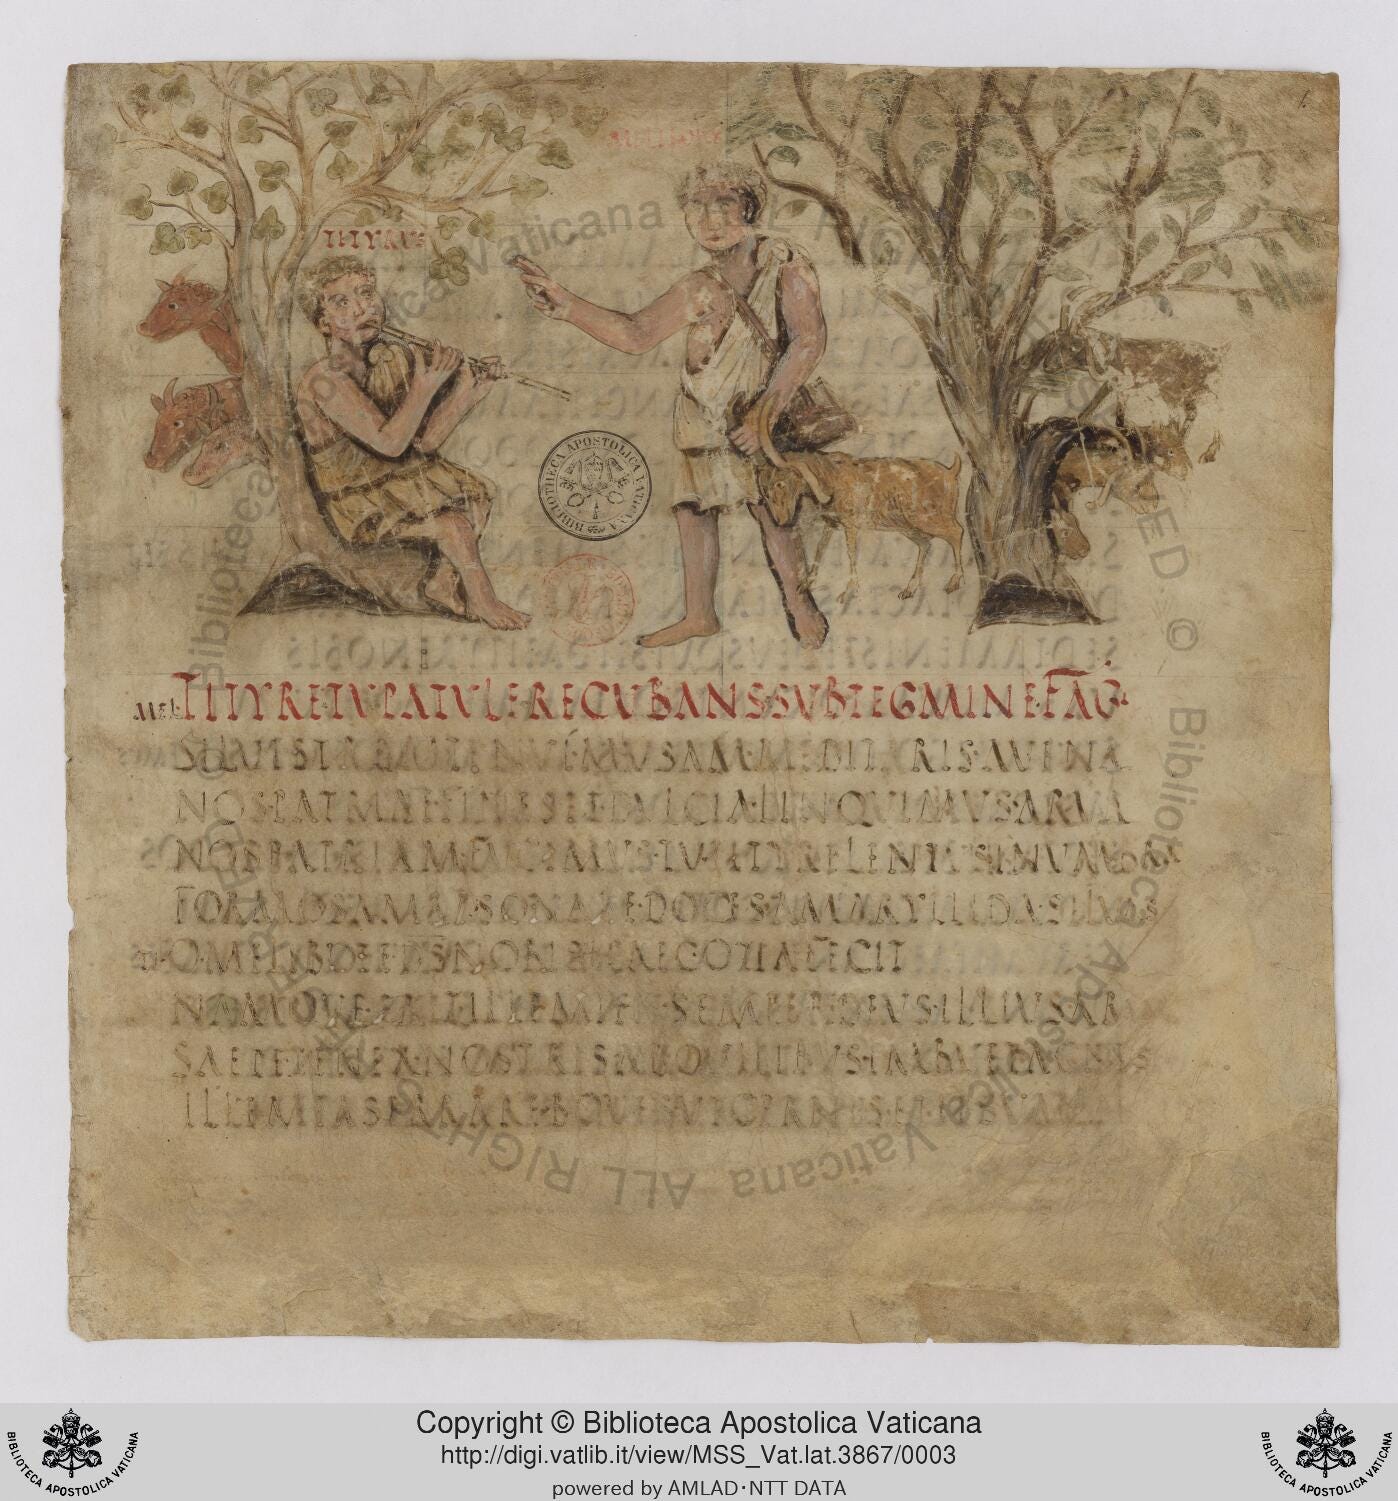 TITYRVS
BIBLIOTHECA APOSTOLICA VATICANA
MEL TITYRE·TV PATVLE RECVBANS SVB TEGMINE·FAG·
SILVESTREM TENVI·MVSAM·MEDITARIS·AVENA
NOS·PATRIAE·FINES ET·DVLCIA·LINQVIMVS·ARVA
NOS PATRIAM FVGIMVS·TV·TITYRE LENTVS IN VMBRA
FORMOSAM RESONARE·DOCES·AMARYLLIDA·SILVAS
O·MELIBOEE DEVS NOBIS HAEC OTIA FECIT
NAMQVE·ERIT·ILLE MIHI·SEMPER DEVS·ILLIVS AR
SAEPE·TENER·NOSTRIS AB OVILIBVS·IMBVET AGNVS
ILLE MEAS ERRARE·BOVES VT CERNIS·ET IPSVM
Biblioteca Apostolica Vaticana ALL RIGHTS RESERVED ©
Copyright © Biblioteca Apostolica Vaticana
http://digi.vatlib.it/view/MSS_Vat.lat.3867/0003
powered by AMLAD·NTT DATA
BIBLIOTECA APOSTOLICA VATICANA
BIBLIOTECA APOSTOLICA VATICANA